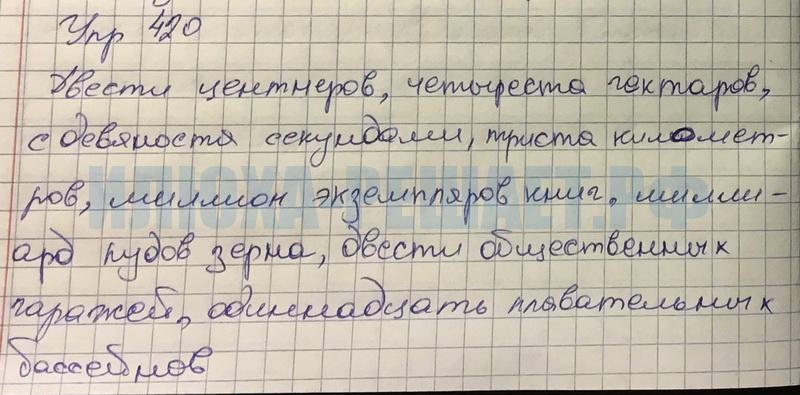 Упр 420
Двести центнеров, четыреста гектаров,
с девяноста секундами, триста километ-
ров, миллион экземпляров книг, милли-
ИЛЮХА-РЕШАЕТ.РФ
ард пудов зерна, двести общественных
гаражей, одиннадцать плавательных
бассейнов